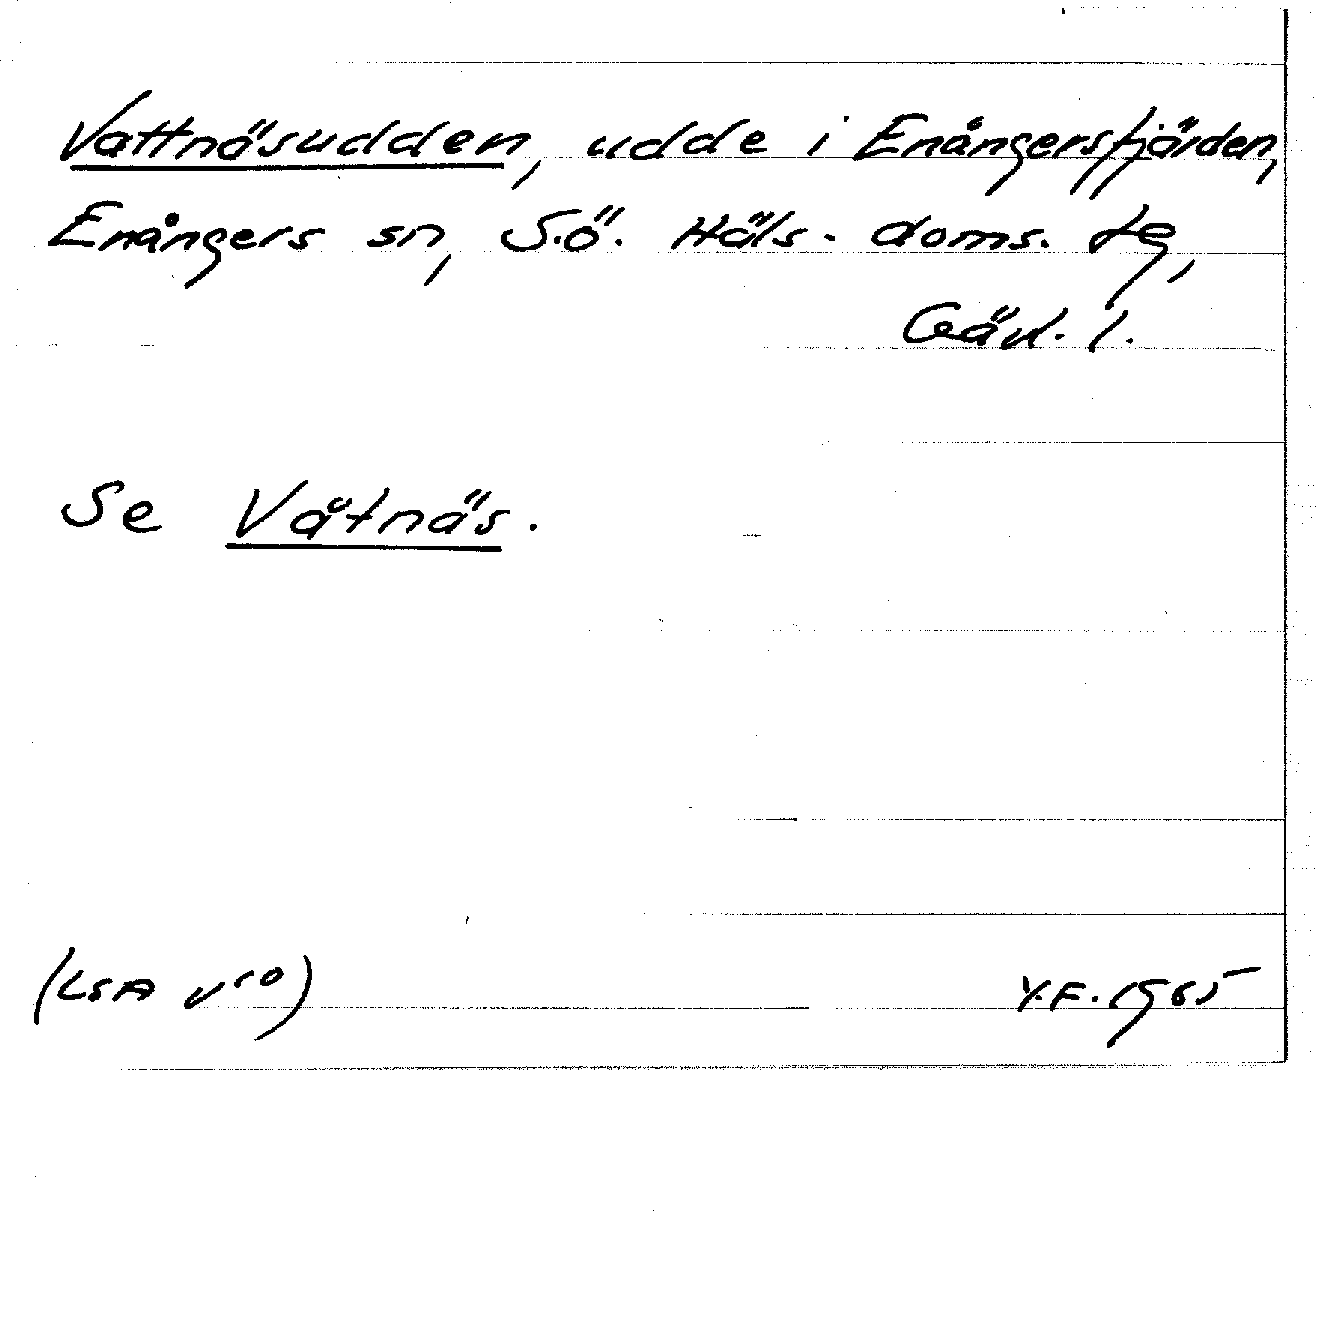 Vattnäsudden, udde i Enångersfjärden,
Enångers sn, S.ö. Häls. doms. tg,
Gävl. l.
Se Våtnäs.
(LSA V 50)
Y.F. 1965